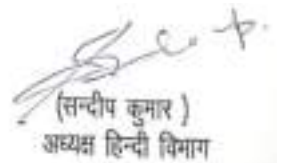 (सन्दीप कुमार )
अध्यक्ष हिन्दी विभाग